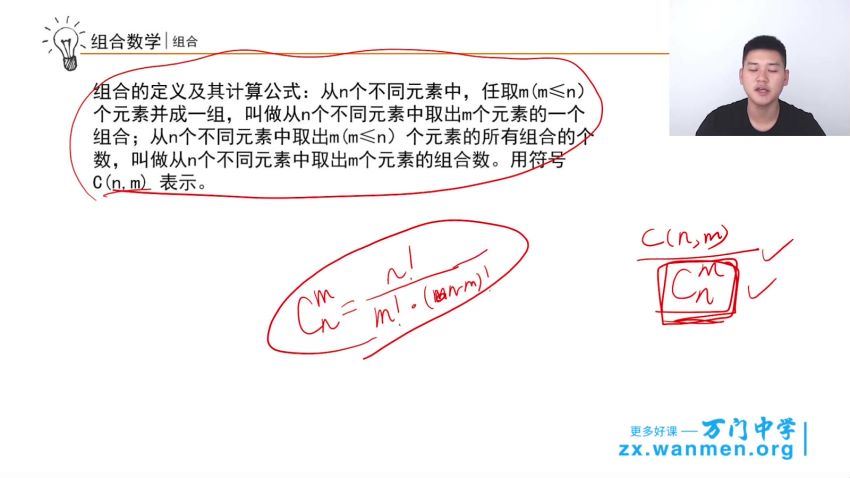 组合数学|组合
组合的定义及其计算公式：从n个不同元素中，任取m(m≤n)
个元素并成一组，叫做从n个不同元素中取出m个元素的一个
组合；从n个不同元素中取出m(m≤n) 个元素的所有组合的个
数，叫做从n个不同元素中取出m个元素的组合数。用符号
C(n,m) 表示。
C(n,m)
C_n^m
C_n^m = n! / m!·(n-m)!
更多好课 — 万门中学
zx.wanmen.org